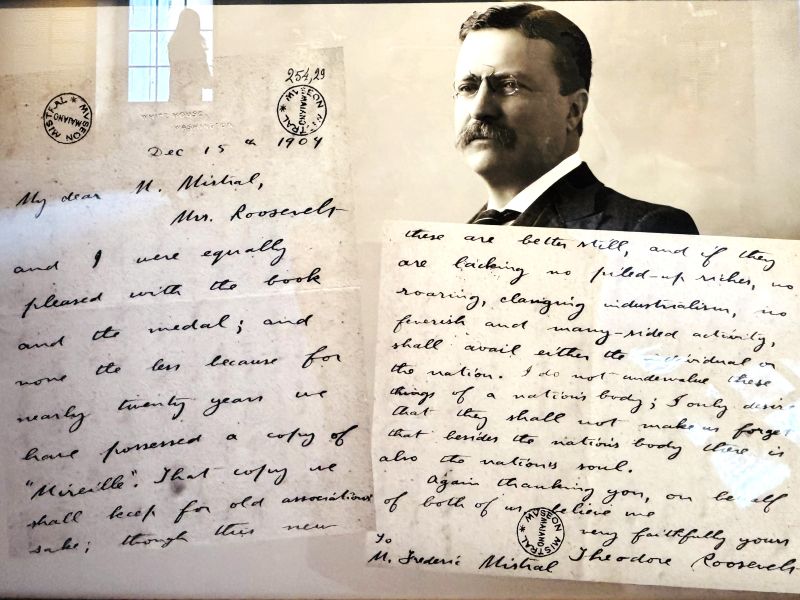 254,29
MVSEON MISTRAL
MAIANO
WHITE HOUSE
WASHINGTON
MVSEON MISTRAL
MAIANO
Dec 15th 1904
My dear M. Mistral,
Mrs. Roosevelt
and I were equally
pleased with the book
and the medal; and
none the less because for
nearly twenty years we
have possessed a copy of
"Mireille". That copy we
shall keep for old associations
sake; though this new
these are better still, and if they
are lacking no piled-up riches, no
roaring, clanging industrialism, no
feverish and many-sided activity,
shall avail either the individual or
the nation. I do not undervalue these
things of a nation's body; I only desire
that they shall not make us forget
that besides the nation's body there is
also the nation's soul.
Again thanking you, on behalf
of both of us, believe me
very faithfully yours
Theodore Roosevelt
MVSEON MISTRAL
MAIANO
To
M. Frederic Mistral